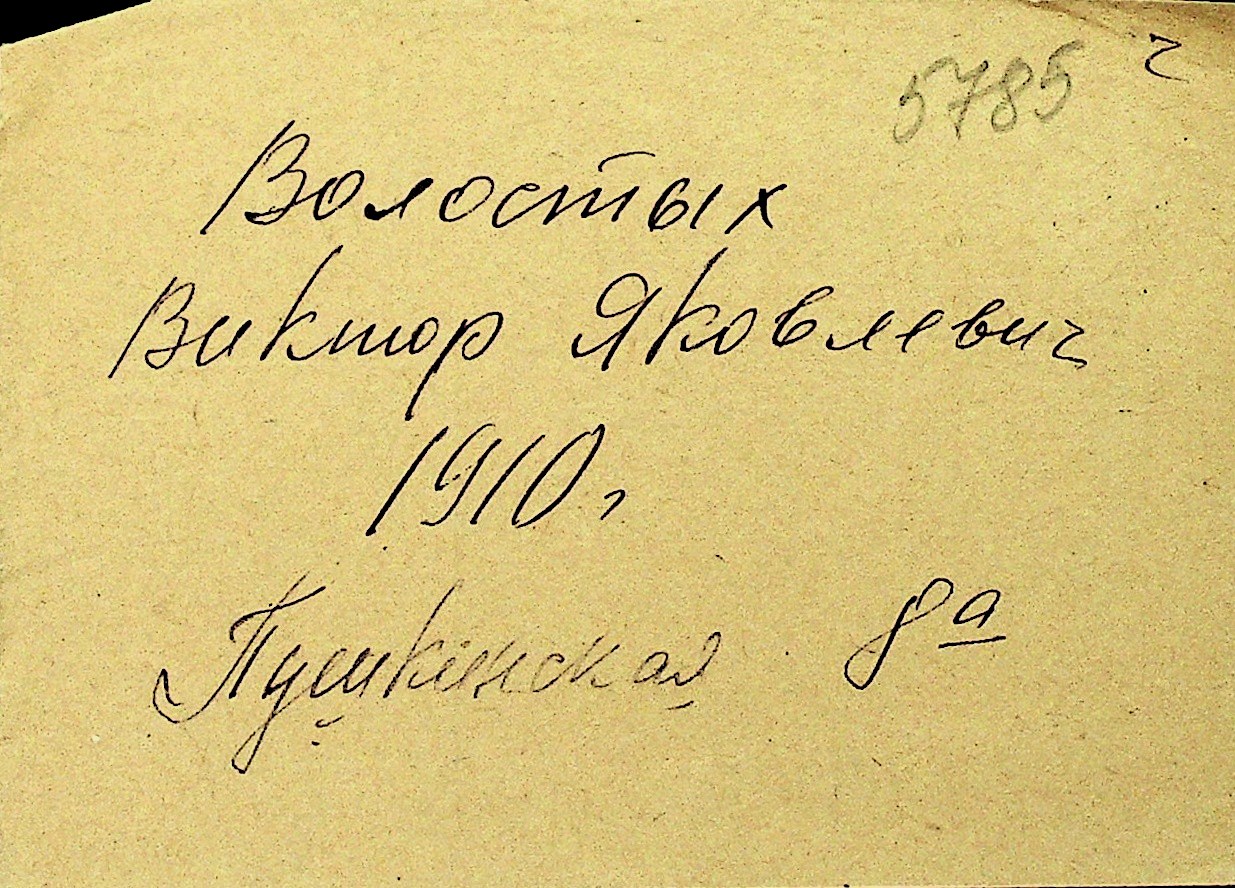 5785 ч
Волостых
Виктор Яковлевич
1910г
Пушкинская 8а